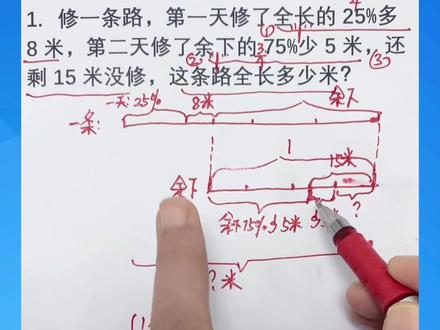 1. 修一条路，第一天修了全长的 25%多
8 米，第二天修了余下的75%少 5 米，还
剩 15 米没修，这条路全长多少米？
① 4
② 3 4 ③
一天:25% 8米 余下
一条:
1
15米
余下
余下75%少5米 ?
? 米